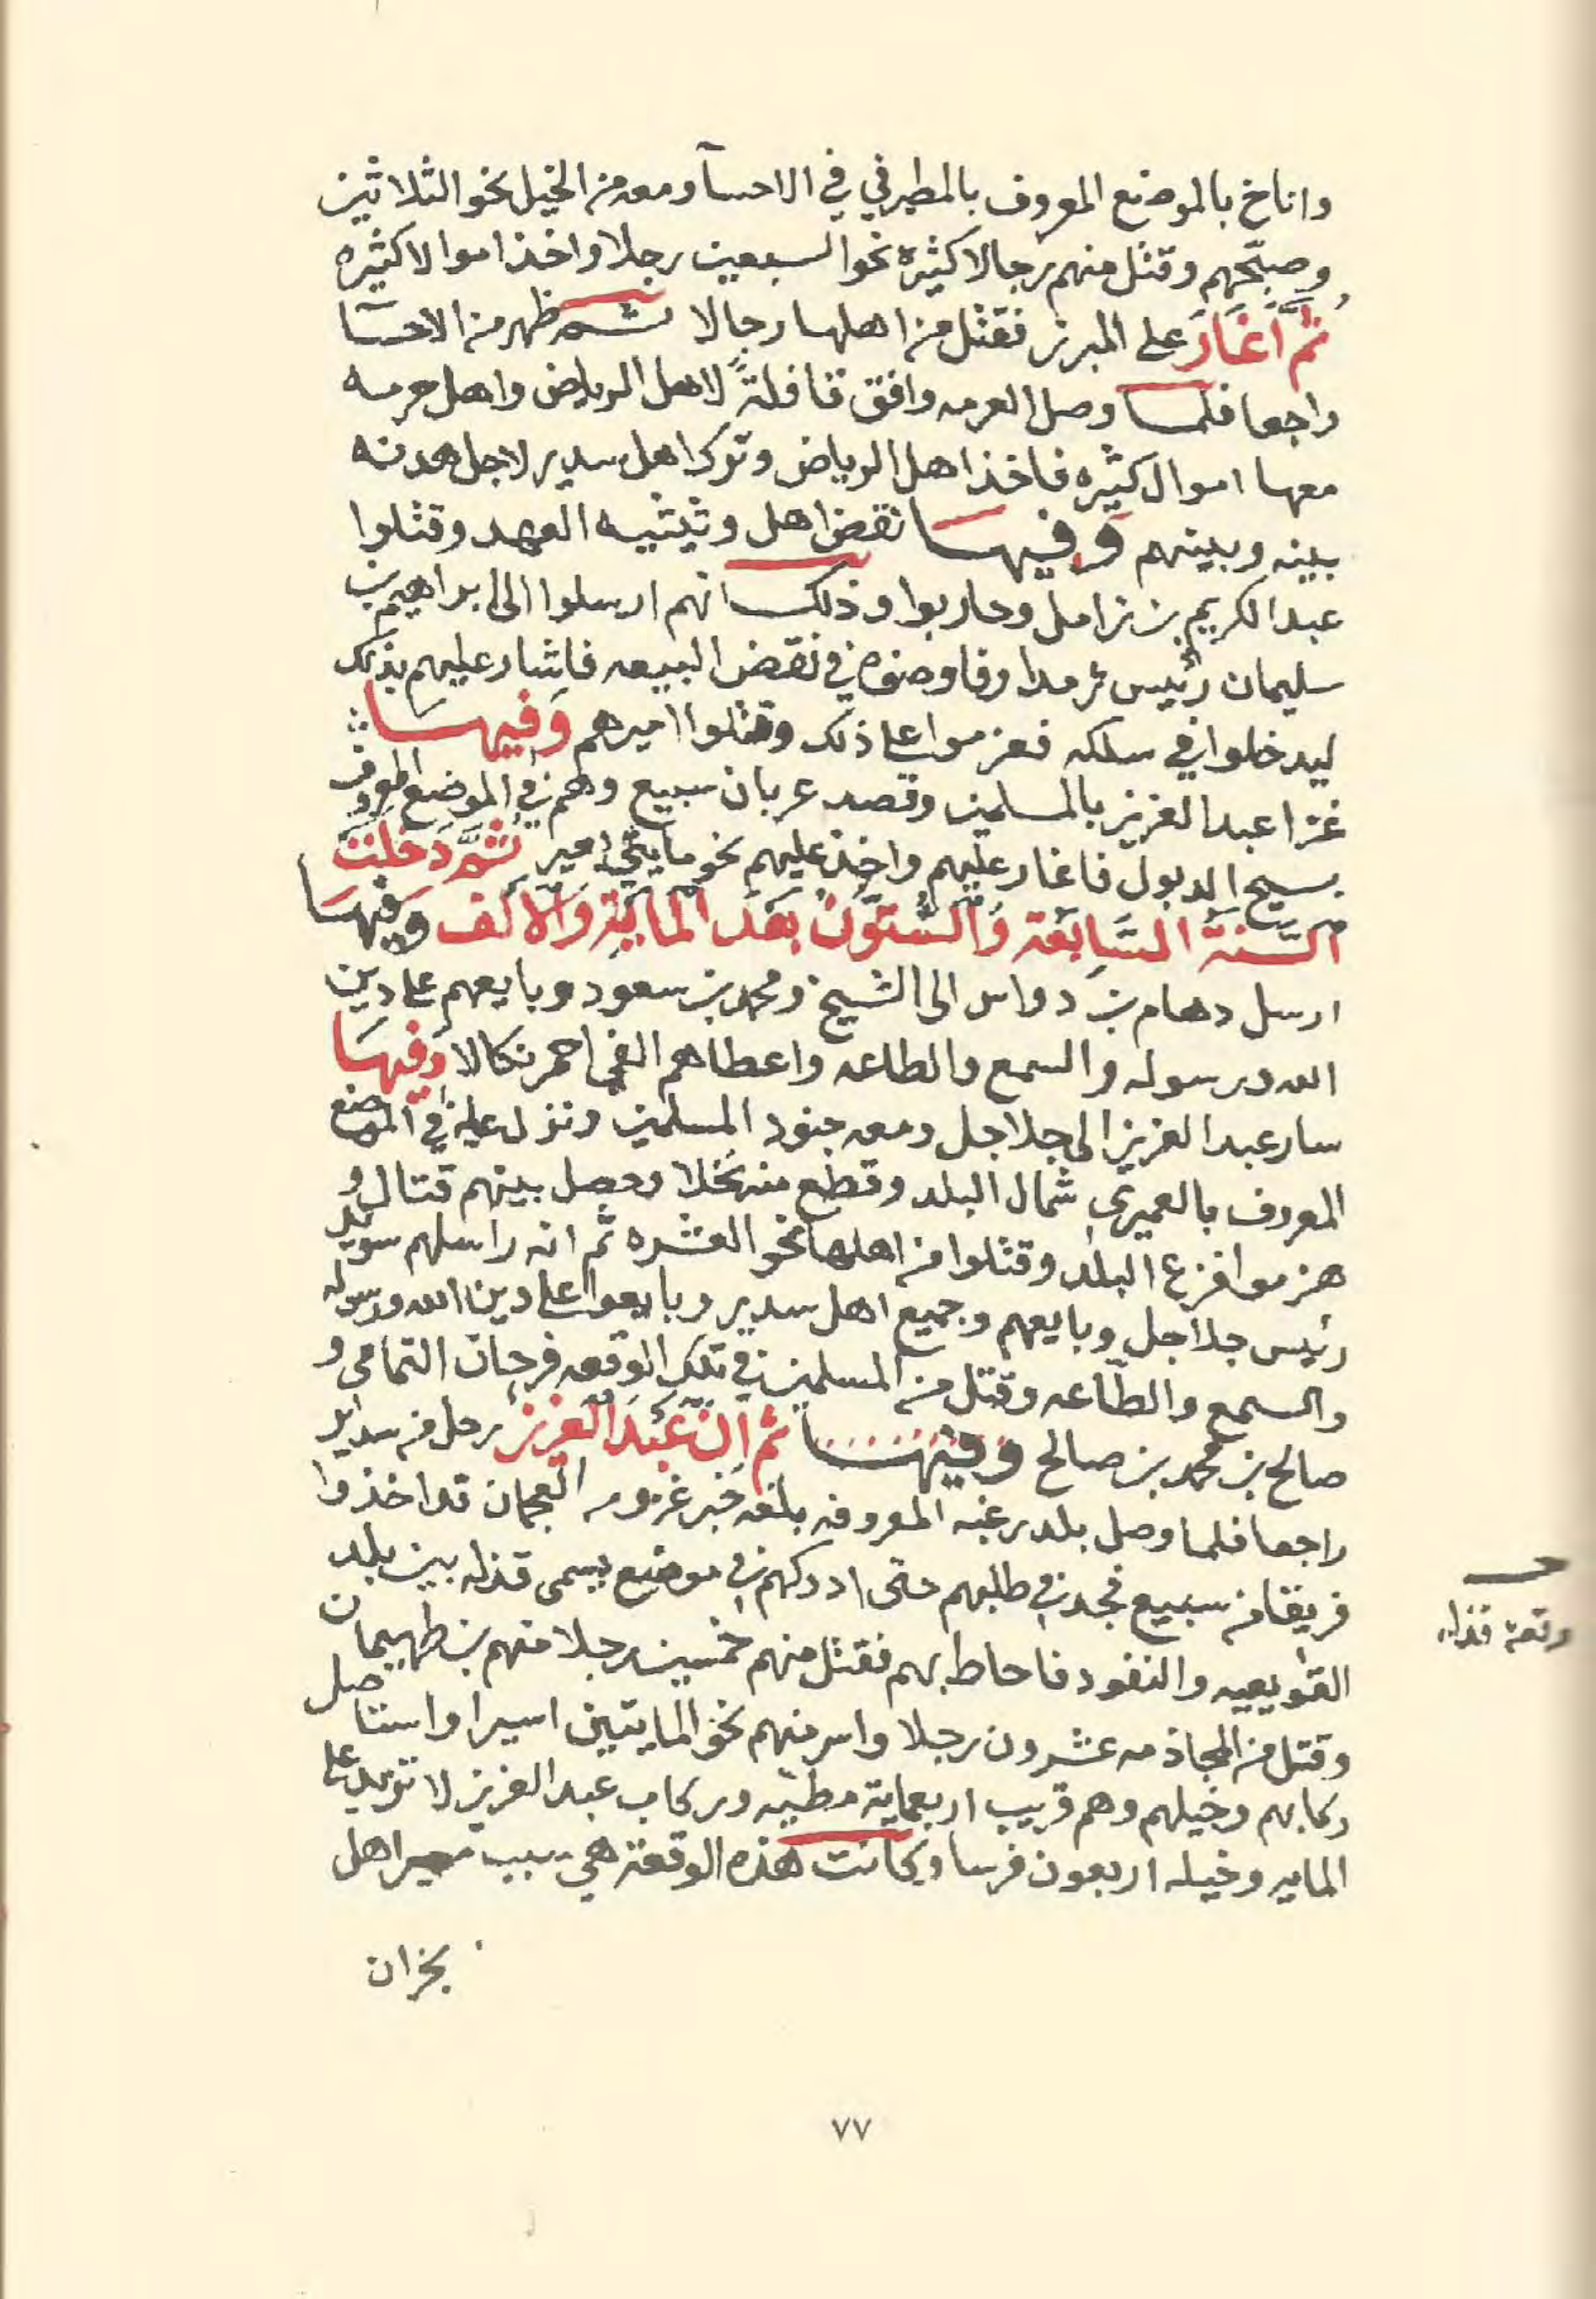 واناخ بالموضع المعروف بالمطيرفي في الاحسآ ومعه من الخيل نحو الثلاثين
وصبّحهم وقتل منهم رجالا كثيره نحو السبعين رجلا واخذ اموالا كثيره
ثُمَّ اَغَارَ على المبرز فقتل من اهلها رجالا ثم ظهر من الاحسآ
راجعا فلما وصل العرمه وافق قافلةً لاهل الرياض واهل حرمه
معها اموال كثيره فاخذ اهل الرياض وترك اهل سدير لاجل هدنه
بينه وبينهم وفيها نقض اهل وثيثيه العهد وقتلوا
عبد الكريم بن زامل وحاربوا وذلك انهم ارسلوا الى ابراهيم بن
سليمان رئيس ثرمدا وفاوضوه في نقض البيعه فاشار عليهم بذلك
ليدخلوا في سلكه فعزموا على ذلك وقتلوا اميرهم وَفيهَا
غزا عبد العزيز بالمسلمين وقصد عربان سبيع وهم في الموضع المعروف
بسيح الدبول فاغار عليهم واخذ عليهم نحو مايتي بعير ثُمَّ دَخَلَتْ
اَلسَّنَةُ السَّابِعَة وَالسِّتُّونَ بَعْدَ الْمَايَةِ وَالْاَلْف وَفيهَا
ارسل دهام بن دواس الى الشيخ ومحمد بن سعود وبايعهم على دين
الله ورسوله والسمع والطاعه واعطاهم الفي احمر نكالا وَفيهَا
سار عبد العزيز الى جلاجل ومعه جنود المسلمين ونزل عليه في الموضع
المعروف بالعميري شمال البلد وقطع منه نخلا وحصل بينهم قتال و
هزموا فزع البلد وقتلوا من اهلها نحو العشره ثم انه راسلهم سويد
رئيس جلاجل وبايعهم وجميع اهل سدير وبايعوا على دين الله ورسوله
والسمع والطّاعه وقتل من المسلمين في تلك الوقعه فرحان التمامي و
صالح بن محمد بن صالح وفيها ثم اِنَّ عَبْدَ الْعَزيز رحل من سدير
راجعا فلما وصل بلد رغبه المعروفه بلغه خبر غزو من العجمان قد اخذوا
فريقا من سبيع فجد في طلبهم حتى ادركهم في موضع يسمى قذله بين بلد
القويعيه والنفود فاحاط بهم فقتل منهم خمسين رجلا منهم بن طهيمان
وقتل من المجاذمه عشرون رجلا واسر منهم نحو المايتين اسيرا واستاصل
ركابهم وخيلهم وهم قريب اربعماية مطيّه وركاب عبد العزيز لا تزيد على
المايه وخيله اربعون فرسا وكانت هذه الوقعة هي سبب مسير اهل
نجران
وقعة قذله
٧٧